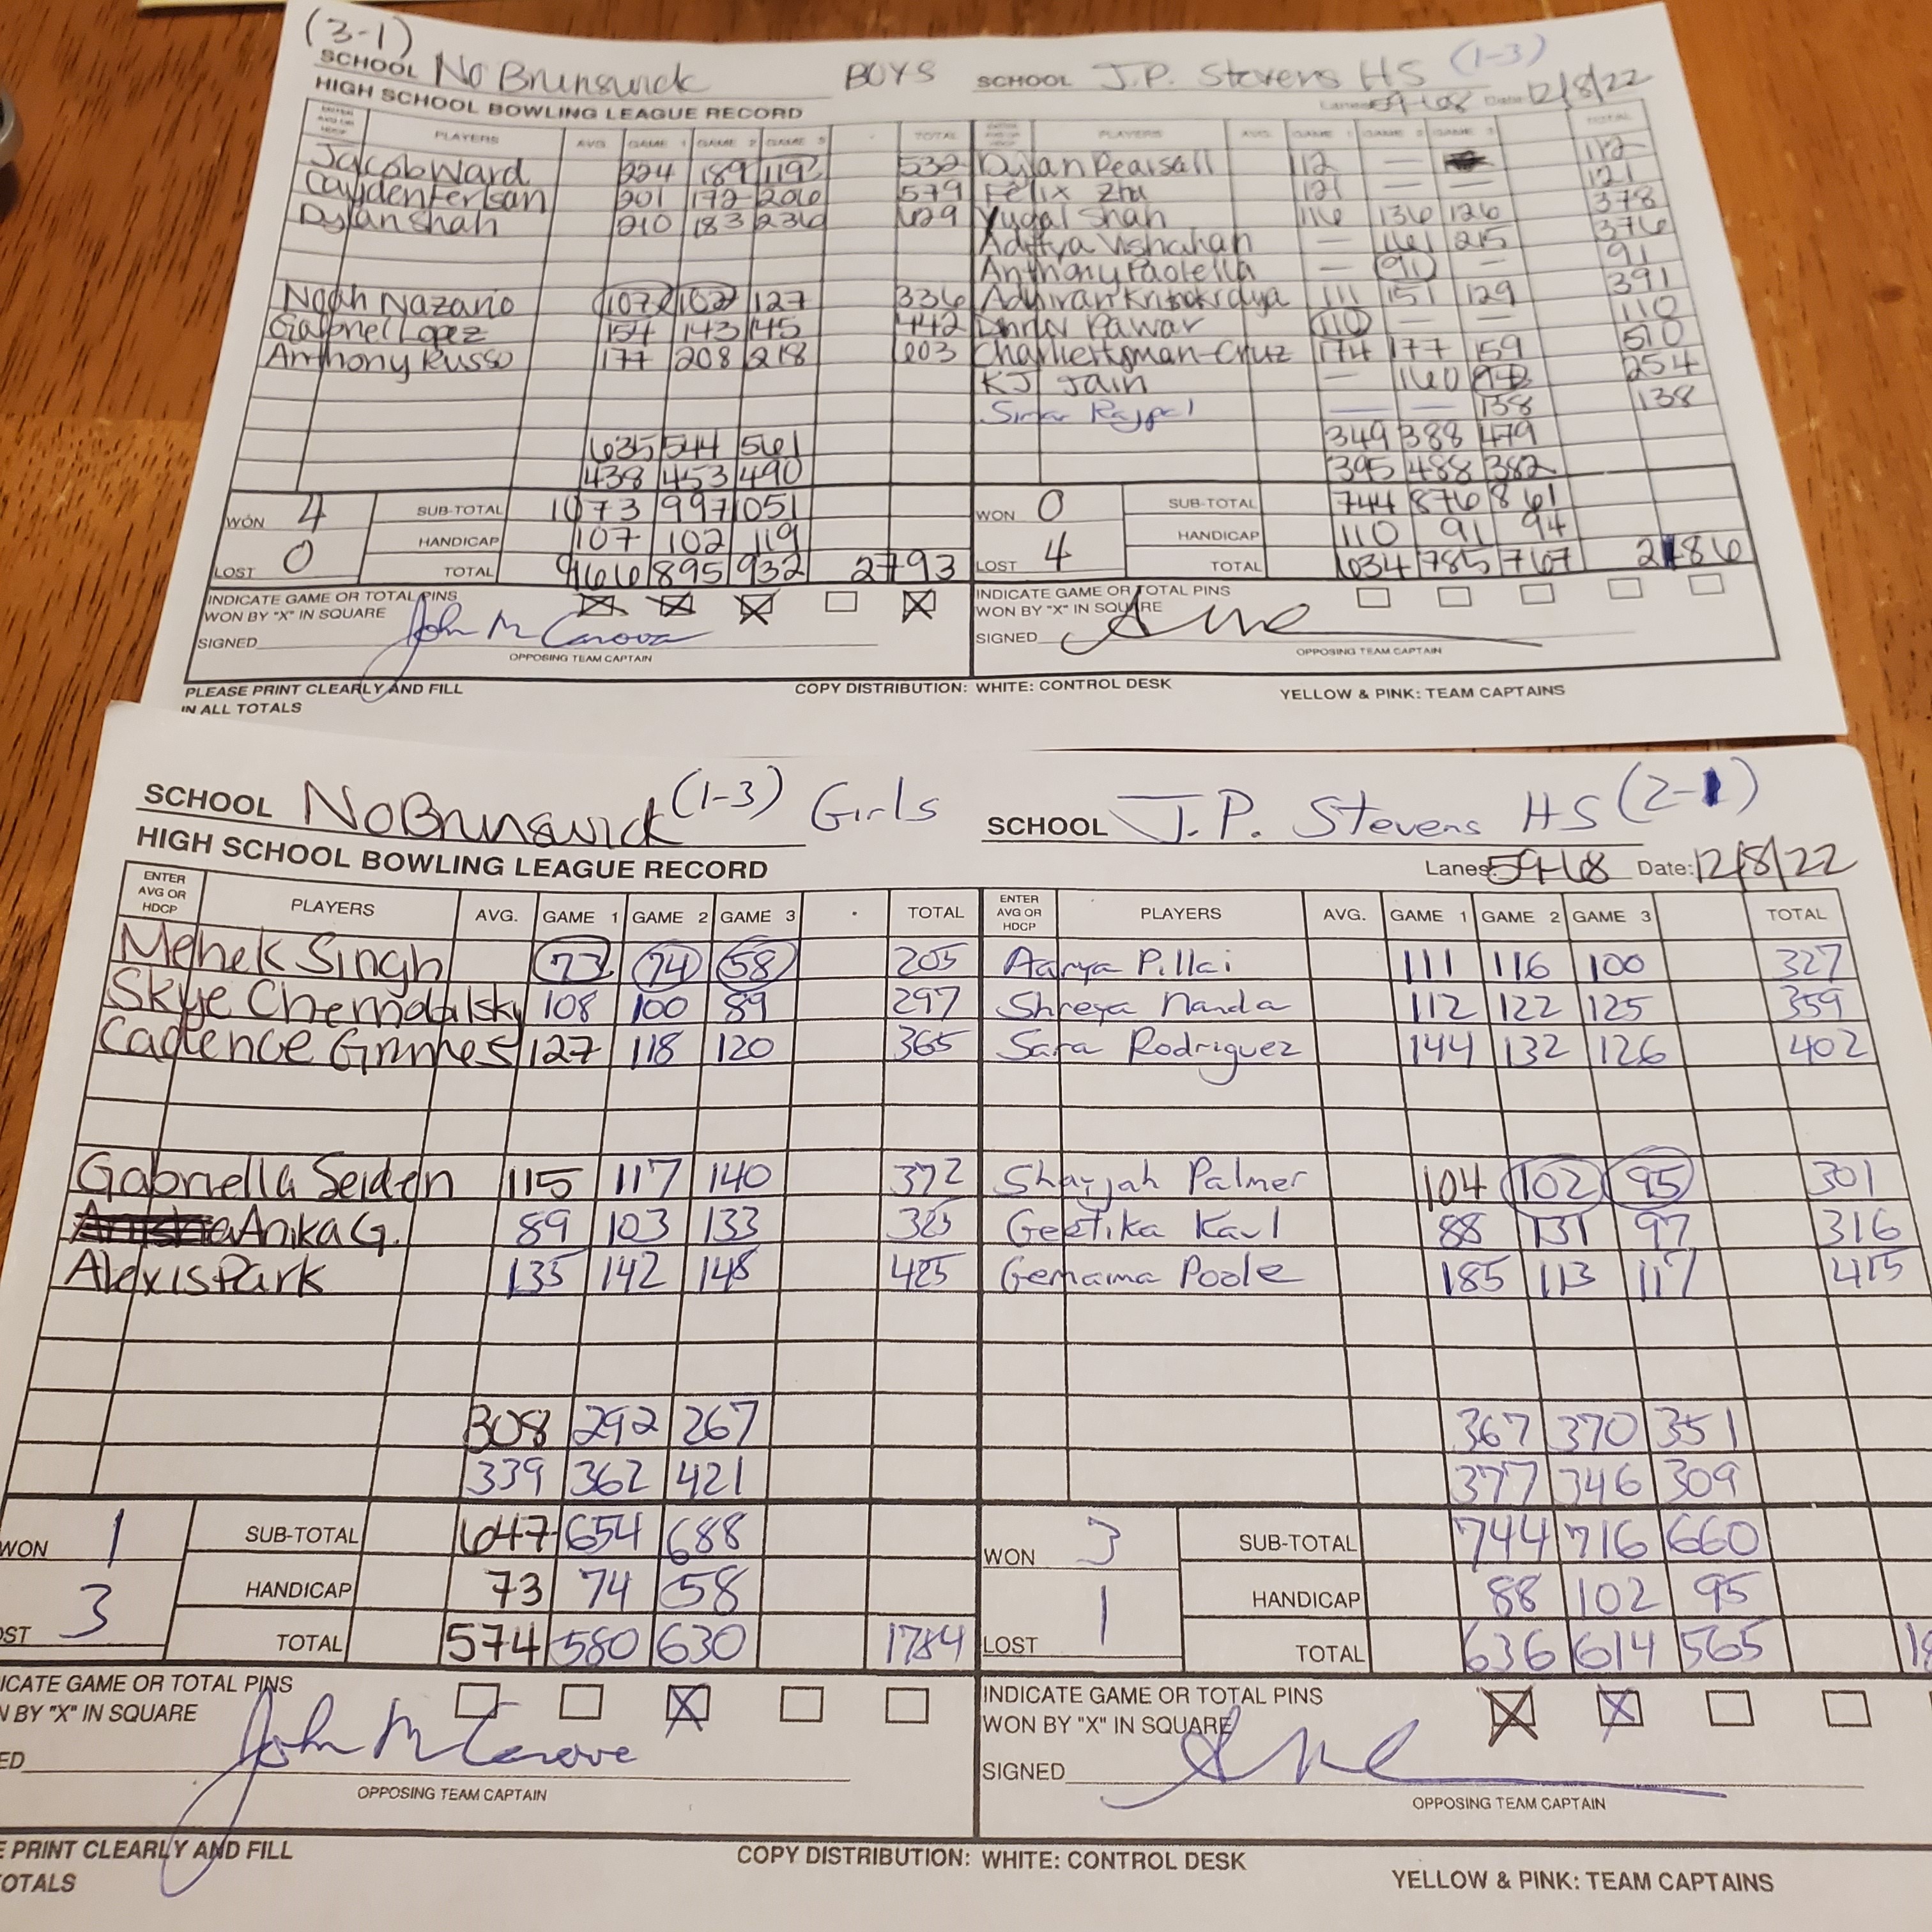 (3-1)
SCHOOL No Brunswick BOYS SCHOOL J.P. Stevens HS (1-3)
HIGH SCHOOL BOWLING LEAGUE RECORD Lanes 59-68 Date: 12/8/22
PLAYERS AVG. GAME 1 GAME 2 GAME 3 TOTAL PLAYERS AVG. GAME 1 GAME 2 GAME 3 TOTAL
Jacob Ward 224 189 119 532 Dylan Pearsall 112 — 112
Cayden 201 172 206 579 Felix Zhu 121 — — 121
Dylan Shah 210 183 236 629 Yugal Shah 116 136 126 378
Aditya — 161 215 376
Anthony Paolella — 91 — 91
Noah Nazario 107 102 127 336 111 151 129 391
Gabriel Lopez 154 143 145 442 Pawar 110 — — 110
Anthony Russo 177 208 218 603 174 177 159 510
KJ Jain — 160 94 254
— — 138 138
635 544 561 349 388 479
438 453 490 395 488 382
WON 4 SUB-TOTAL 1073 997 1051 WON 0 SUB-TOTAL 744 876 861
HANDICAP 107 102 119 HANDICAP 110 91 94
LOST 0 TOTAL 966 895 932 2793 LOST 4 TOTAL 634 785 767 2186
INDICATE GAME OR TOTAL PINS INDICATE GAME OR TOTAL PINS
WON BY "X" IN SQUARE WON BY "X" IN SQUARE
SIGNED John M SIGNED
OPPOSING TEAM CAPTAIN OPPOSING TEAM CAPTAIN
PLEASE PRINT CLEARLY AND FILL COPY DISTRIBUTION: WHITE: CONTROL DESK YELLOW & PINK: TEAM CAPTAINS
IN ALL TOTALS
SCHOOL No Brunswick (1-3) Girls SCHOOL J.P. Stevens HS (2-1)
HIGH SCHOOL BOWLING LEAGUE RECORD Lanes: 59-68 Date: 12/8/22
ENTER AVG OR HDCP PLAYERS AVG. GAME 1 GAME 2 GAME 3 . TOTAL ENTER AVG OR HDCP PLAYERS AVG. GAME 1 GAME 2 GAME 3 TOTAL
Mehek Singh 73 74 58 205 Aarya Pillai 111 116 100 327
Skye 108 100 89 297 Shreya Nanda 112 122 125 359
Cadence Grimes 127 118 120 365 Sara Rodriguez 144 132 126 402
Gabriella Seiden 115 117 140 372 Shayjah Palmer 104 102 95 301
Anika G. 89 103 133 325 Geetika Kaul 88 131 97 316
Alexis Park 135 142 148 425 Gemaima Poole 185 113 117 415
308 292 267 367 370 351
339 362 421 377 346 309
WON 1 SUB-TOTAL 647 654 688 WON 3 SUB-TOTAL 744 716 660
HANDICAP 73 74 58 HANDICAP 88 102 95
OST 3 TOTAL 574 580 630 1784 LOST 1 TOTAL 636 614 565 18
DICATE GAME OR TOTAL PINS INDICATE GAME OR TOTAL PINS
N BY "X" IN SQUARE WON BY "X" IN SQUARE
ED John M SIGNED
OPPOSING TEAM CAPTAIN OPPOSING TEAM CAPTAIN
E PRINT CLEARLY AND FILL COPY DISTRIBUTION: WHITE: CONTROL DESK YELLOW & PINK: TEAM CAPTAINS
OTALS